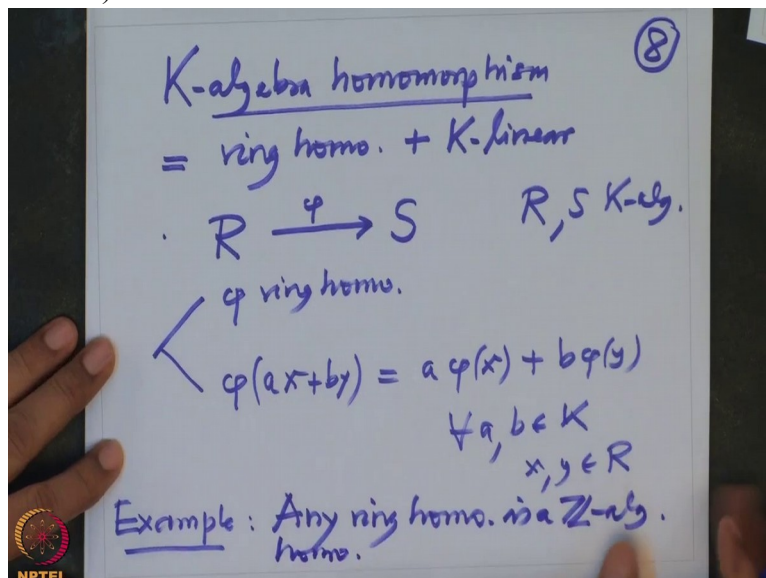 ⑧
K-algebra homomorphism
= ring homo. + K-linear
R —φ→ S R, S K-alg.
φ ring homo.
φ(ax+by) = a φ(x) + b φ(y)
∀ a, b ∈ K
x, y ∈ R
Example : Any ring homo. is a ℤ-alg.
homo.
NPTEL